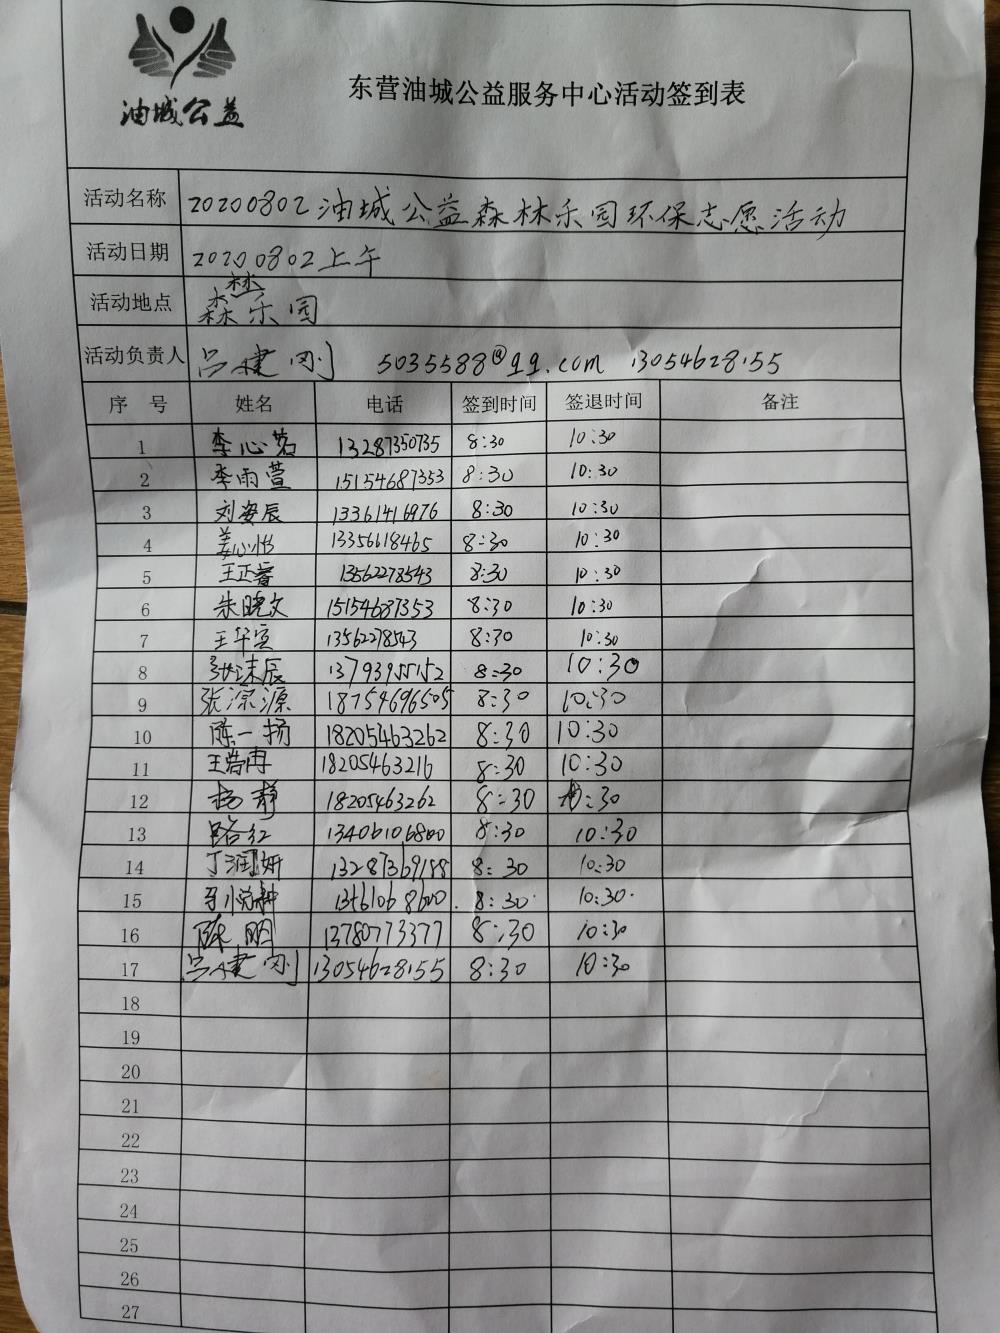 油城公益
东营油城公益服务中心活动签到表
活动名称 20200802油城公益森林乐园环保志愿活动
活动日期 20200802上午
活动地点 森林乐园
活动负责人 吕建刚 5035588@qq.com 13054628155
序 号 姓名 电话 签到时间 签退时间 备注
1 李心茗 13287350735 8:30 10:30
2 李雨萱 15154687353 8:30 10:30
3 刘姿辰 13361416976 8:30 10:30
4 姜心悦 13356618465 8:30 10:30
5 王正睿 13562278543 8:30 10:30
6 朱晓文 15154687353 8:30 10:30
7 王华宣 13562278543 8:30 10:30
8 张沫辰 13793955152 8:30 10:30
9 张淙源 18754696505 8:30 10:30
10 陈一扬 18205463262 8:30 10:30
11 王浩冉 18205463216 8:30 10:30
12 杨静 18205463262 8:30 10:30
13 路红 13406106800 8:30 10:30
14 丁润妍 13287369188 8:30 10:30
15 8:30 10:30
16 陈鹏 13780773377 8:30 10:30
17 吕建刚 13054628155 8:30 10:30
18
19
20
21
22
23
24
25
26
27